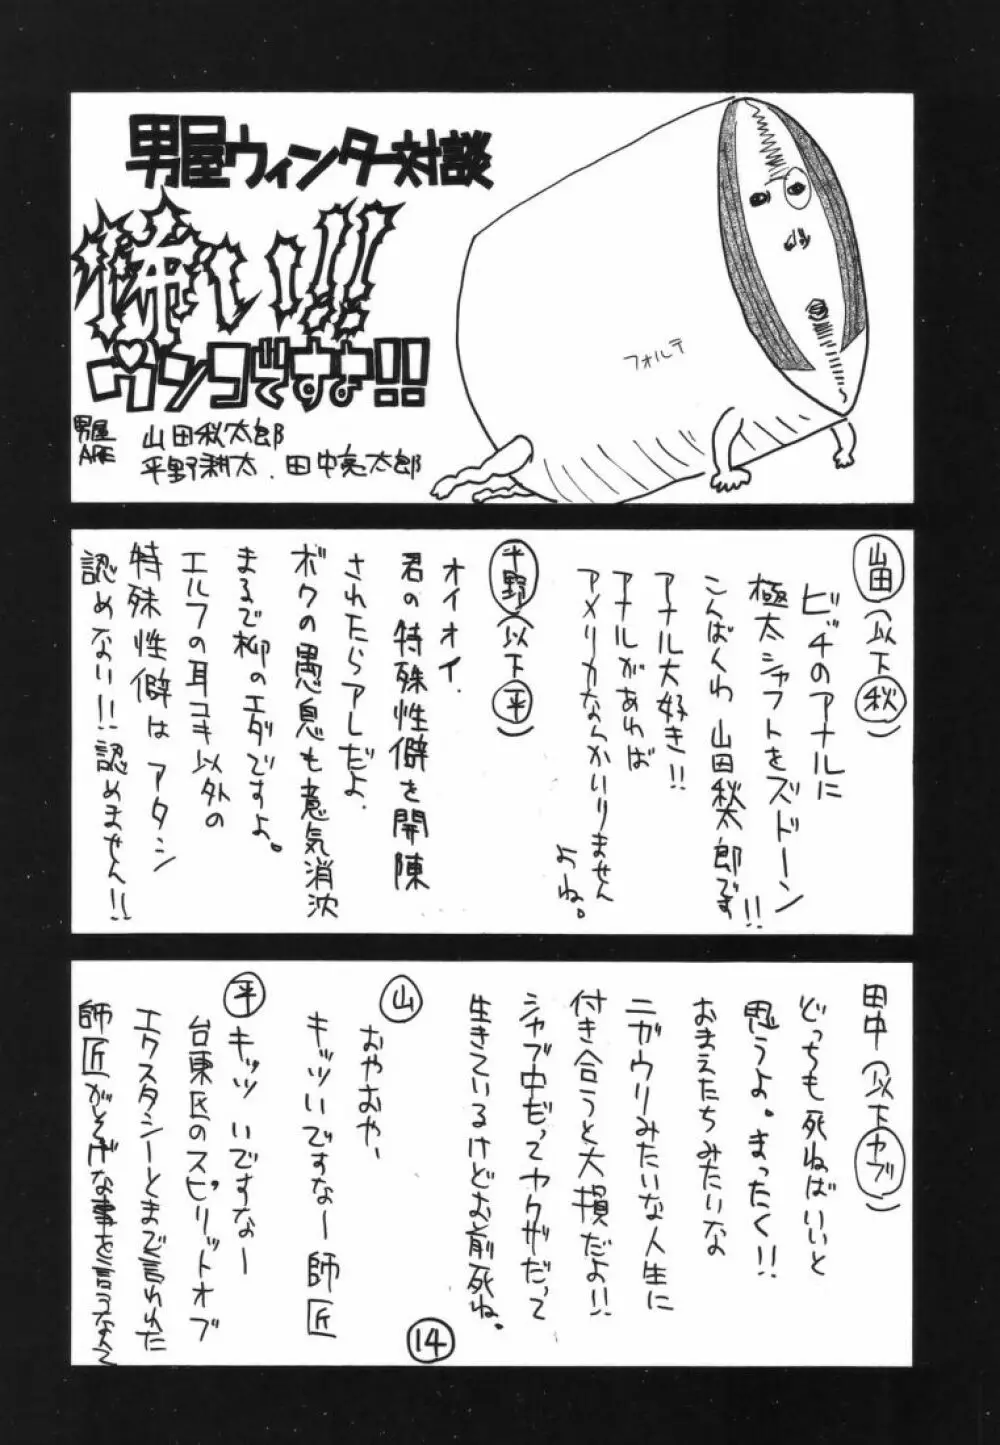 男屋ウィンター対談
怖い!!
ウンコですよ!!
男屋
山田秋太郎
平野耕太．田中亮太郎
フォルテ
山田(以下秋)
ビッチのアナルに
極太シャフトをズドーン
こんばんわ 山田秋太郎です!!
アナル大好き!!
アナルがあれば
アメリカなんかいりません
よね。
平野(以下平)
オイオイ．
君の特殊性癖を開陳
されたらアレだよ．
ボクの愚息も意気消沈
まるで柳のエダですよ。
エルフの耳コキ以外の
特殊性癖は アタシ
認めない!! 認めません!!
田中(以下ヤブ)
どっちも死ねばいいと
思うよ。まったく!!
おまえたちみたいな
ニガウリみたいな人生に
付き合うと大損だよ!!
シャブ中だってヤクザだって
生きているけどお前死ね。
山
おやおや、
キッツいですなー 師匠
平
キッツ いですなー
台東区のスピリットオブ
エクスタシーとまで言われた
師匠がそんな事を言うなんて
14